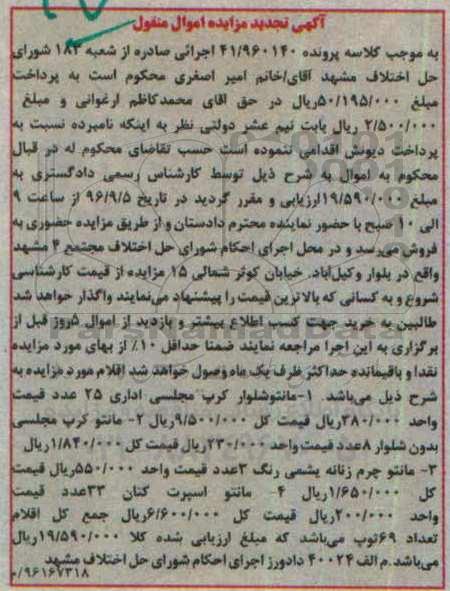 آگهی تجدید مزایده اموال منقول
به موجب کلاسه پرونده ۴۱/۹۶۰۱۴۰ اجرائی صادره از شعبه ۱۸۳ شورای
حل اختلاف مشهد آقای/خانم امیر اصغری محکوم است به پرداخت
مبلغ ۵۰/۱۹۵/۰۰۰ریال در حق آقای محمدکاظم ارغوانی و مبلغ
۲/۵۰۰/۰۰۰ ریال بابت نیم عشر دولتی نظر به اینکه نامبرده نسبت به
پرداخت دیونش اقدامی ننموده است حسب تقاضای محکوم له در قبال
محکوم به اموال به شرح ذیل توسط کارشناس رسمی دادگستری به
مبلغ ۱۹/۵۹۰/۰۰۰ارزیابی و مقرر گردید در تاریخ ۹۶/۹/۵ از ساعت ۹
الی ۱۰صبح با حضور نماینده محترم دادستان و از طریق مزایده حضوری به
فروش می‌رسد و در محل اجرای احکام شورای حل اختلاف مجتمع ۴ مشهد
واقع در بلوار وکیل‌آباد. خیابان کوثر شمالی ۱۵ مزایده از قیمت کارشناسی
شروع و به کسانی که بالاترین قیمت را پیشنهاد می‌نمایند واگذار خواهد شد
طالبین به خرید جهت کسب اطلاع بیشتر و بازدید از اموال ۵روز قبل از
برگزاری به این اجرا مراجعه نمایند ضمنا حداقل ۱۰٪ از بهای مورد مزایده
نقدا و باقیمانده حداکثر ظرف یک ماه وصول خواهد شد اقلام مورد مزایده به
شرح ذیل می‌باشد. ۱-مانتوشلوار کرپ مجلسی اداری ۲۵ عدد قیمت
واحد ۳۸۰/۰۰۰ریال قیمت کل ۹/۵۰۰/۰۰۰ریال ۲- مانتو کرپ مجلسی
بدون شلوار ۸عدد قیمت واحد ۲۳۰/۰۰۰ریال قیمت کل ۱/۸۴۰/۰۰۰ریال
۳- مانتو چرم زنانه یشمی رنگ ۳عدد قیمت واحد ۵۵۰/۰۰۰ریال قیمت
کل ۱/۶۵۰/۰۰۰ریال ۴- مانتو اسپرت کتان ۳۳عدد قیمت
واحد ۲۰۰/۰۰۰ریال قیمت کل ۶/۶۰۰/۰۰۰ریال جمع کل اقلام
تعداد ۶۹ثوب می‌باشد که مبلغ ارزیابی شده کلا ۱۹/۵۹۰/۰۰۰ریال
می‌باشد.م الف ۴۰۰۲۴ دادورز اجرای احکام شورای حل اختلاف مشهد
/۹۶۱۶۷۳۱۸